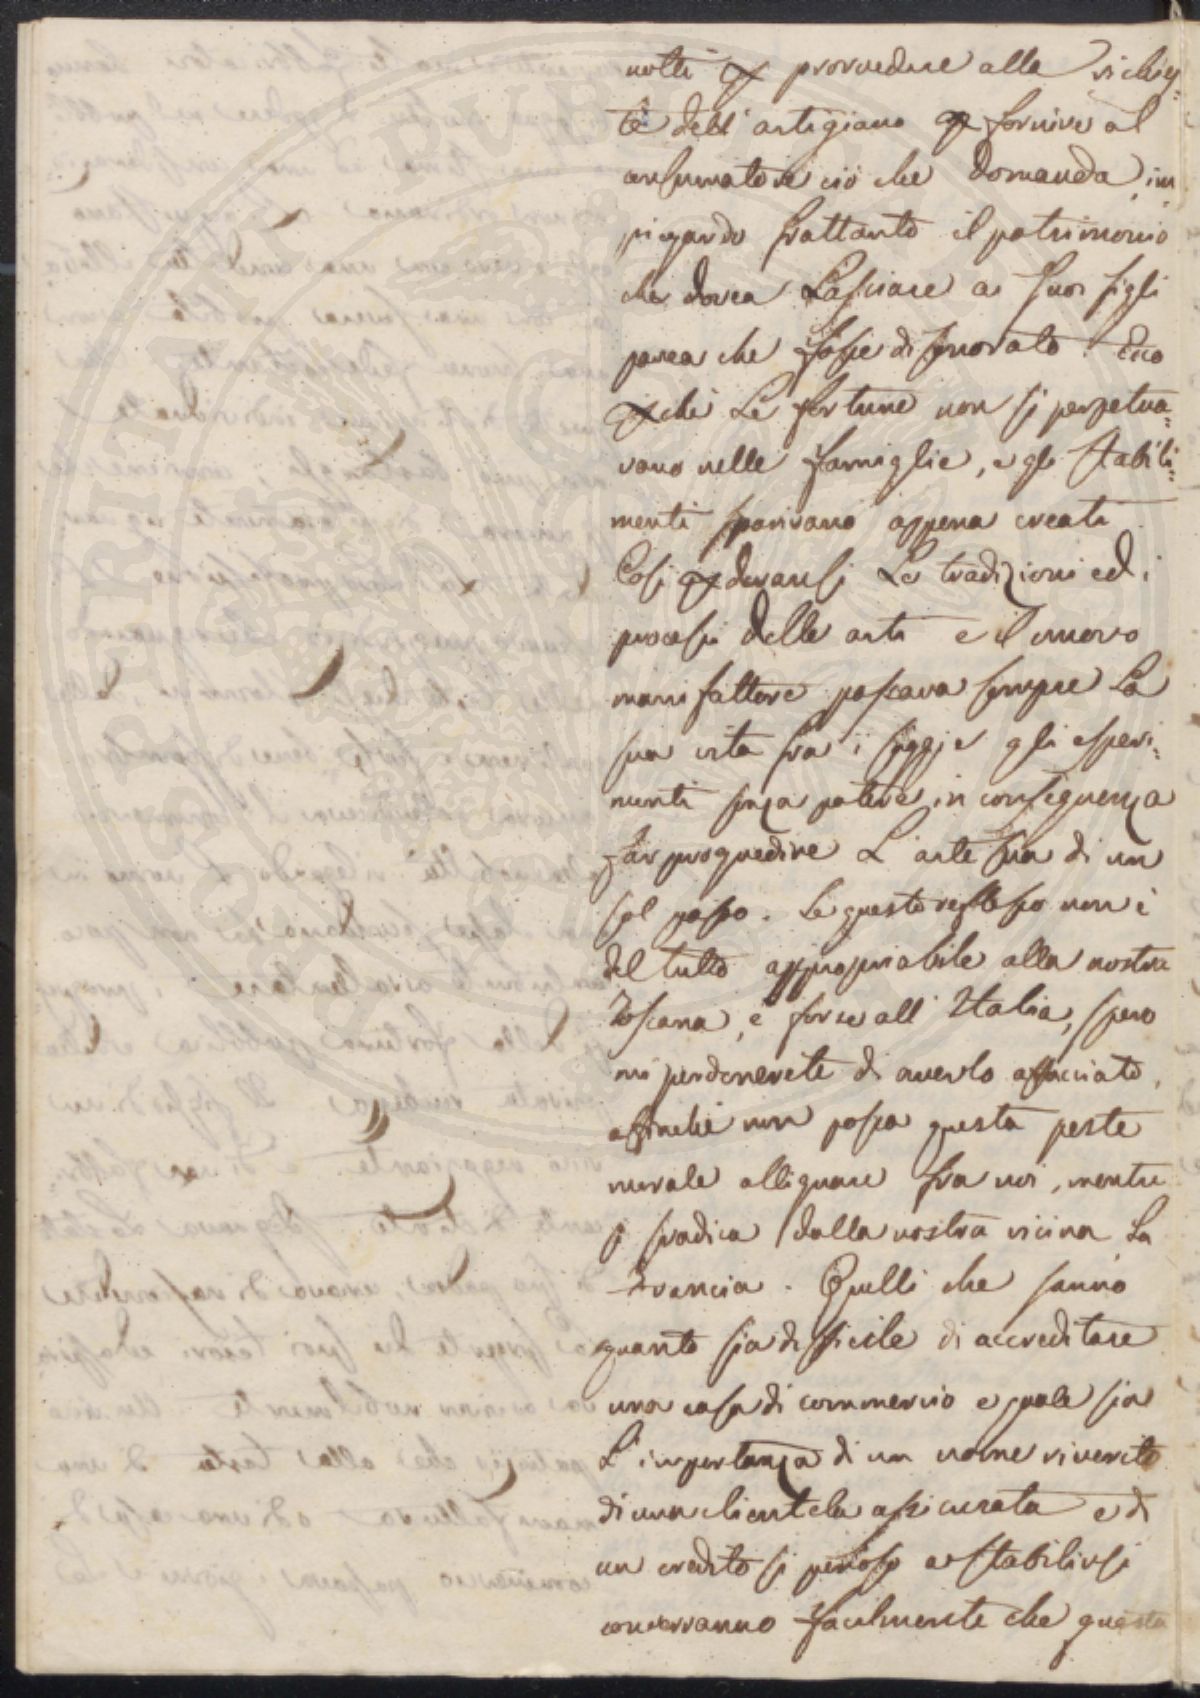 notti p provvedere alle richies=
te dell' artigiano p fornire al
consumatore ciò che domanda, im
piegando frattanto il patrimonio
che dovea Lasciare a suoi figli
parea che fosse disonorato. Ecco
pchè Le fortune non si perpetua=
vano nelle famiglie, e gli stabili=
menti sparivano appena creati
Così pdevansi Le tradizioni ed i
processi delle arti e il nuovo
manifattore passava sempre La
sua vita fra i saggj e gli esperi=
menti senza potere in conseguenza
far progredire L'arte sua di un
sol passo. Se questo riflesso non è
del tutto appropriabile alla nostra
Toscana, e forse all' Italia, spero
mi perdonerete di averlo affacciato,
affinchè non possa questa peste
morale allignare fra noi, mentre
si sradica dalla nostra vicina La
Francia. Quelli che sanno
quanto sia difficile di accreditare
una casa di commercio e quale sia
L'importanza di un nome riverito
di una clientela assicurata e di
un credito sì penoso a stabilirsi
converranno facilmente che questa